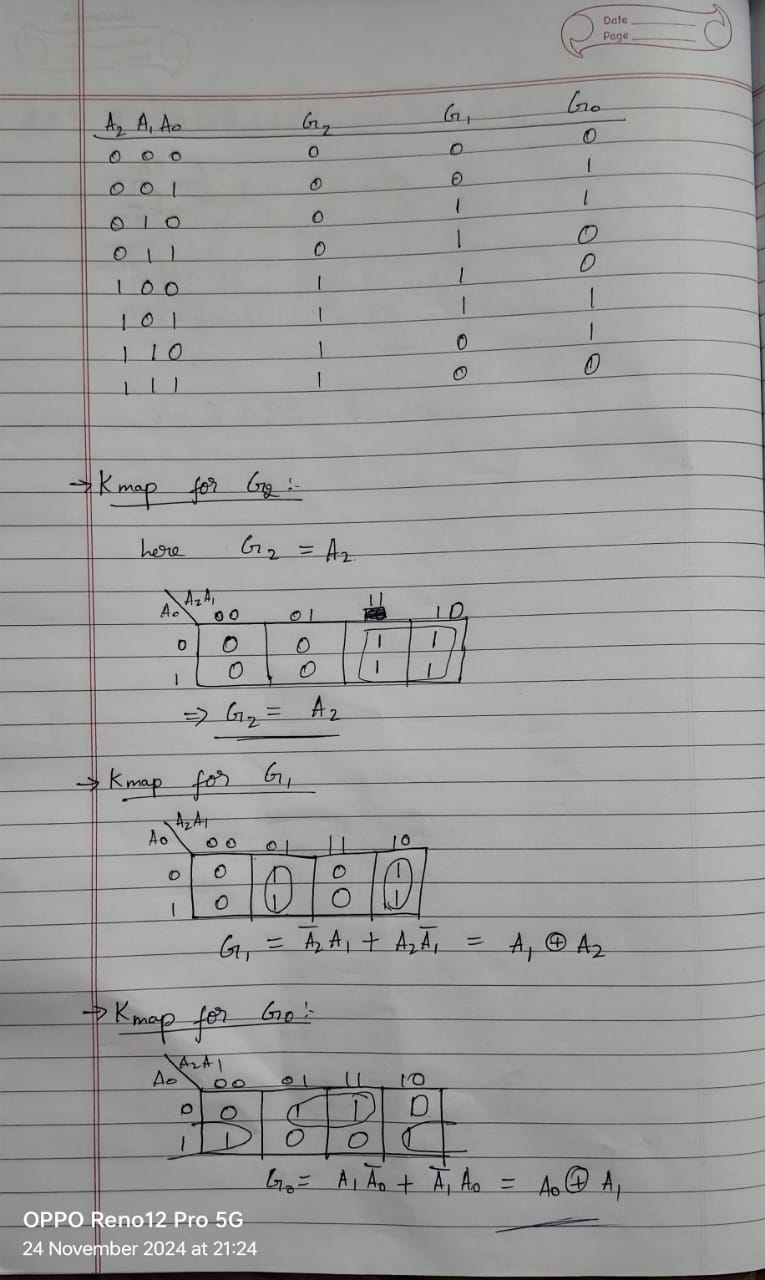 Date
Page
A₂ A₁ A₀ G₂ G₁ G₀
0 0 0 0 0 0
0 0 1 0 0 1
0 1 0 0 1 1
0 1 1 0 1 0
1 0 0 1 1 0
1 0 1 1 1 1
1 1 0 1 0 1
1 1 1 1 0 0
→ Kmap for G₂ :-
here G₂ = A₂
A₀ \ A₂A₁ 00 01 11 10
0 0 0 1 1
1 0 0 1 1
⇒ G₂ = A₂
→ Kmap for G₁
A₀ \ A₂A₁ 00 01 11 10
0 0 1 0 1
1 0 1 0 1
G₁ = A̅₂ A₁ + A₂ A̅₁ = A₁ ⊕ A₂
→ Kmap for G₀ :-
A₀ \ A₂A₁ 00 01 11 10
0 0 1 1 0
1 1 0 0
G₀ = A₁ A̅₀ + A̅₁ A₀ = A₀ ⊕ A₁
OPPO Reno12 Pro 5G
24 November 2024 at 21:24